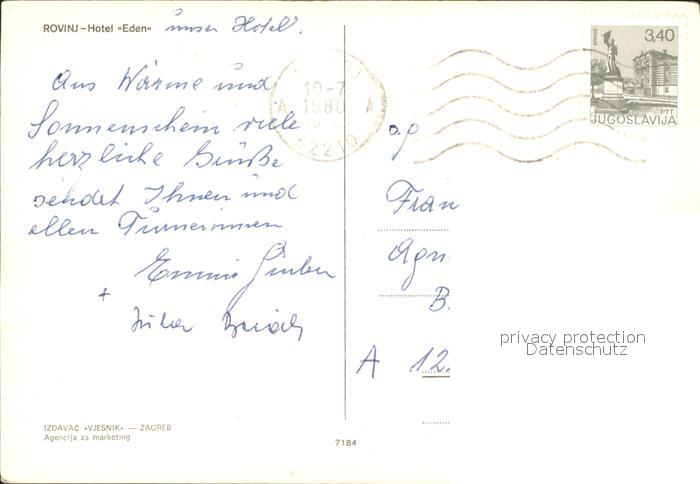 ROVINJ – Hotel »Eden« unser Hotel.
Aus Wärme und
Sonnenschein viele
herzliche Grüße
sendet Ihnen und
allen Turnerinnen
+
10-7
A 1980 A
52210
3,40
PTT
JUGOSLAVIJA
Frau
Agn
B.
A 12
privacy protection
Datenschutz
IZDAVAČ »VJESNIK« — ZAGREB
Agencija za marketing
7184